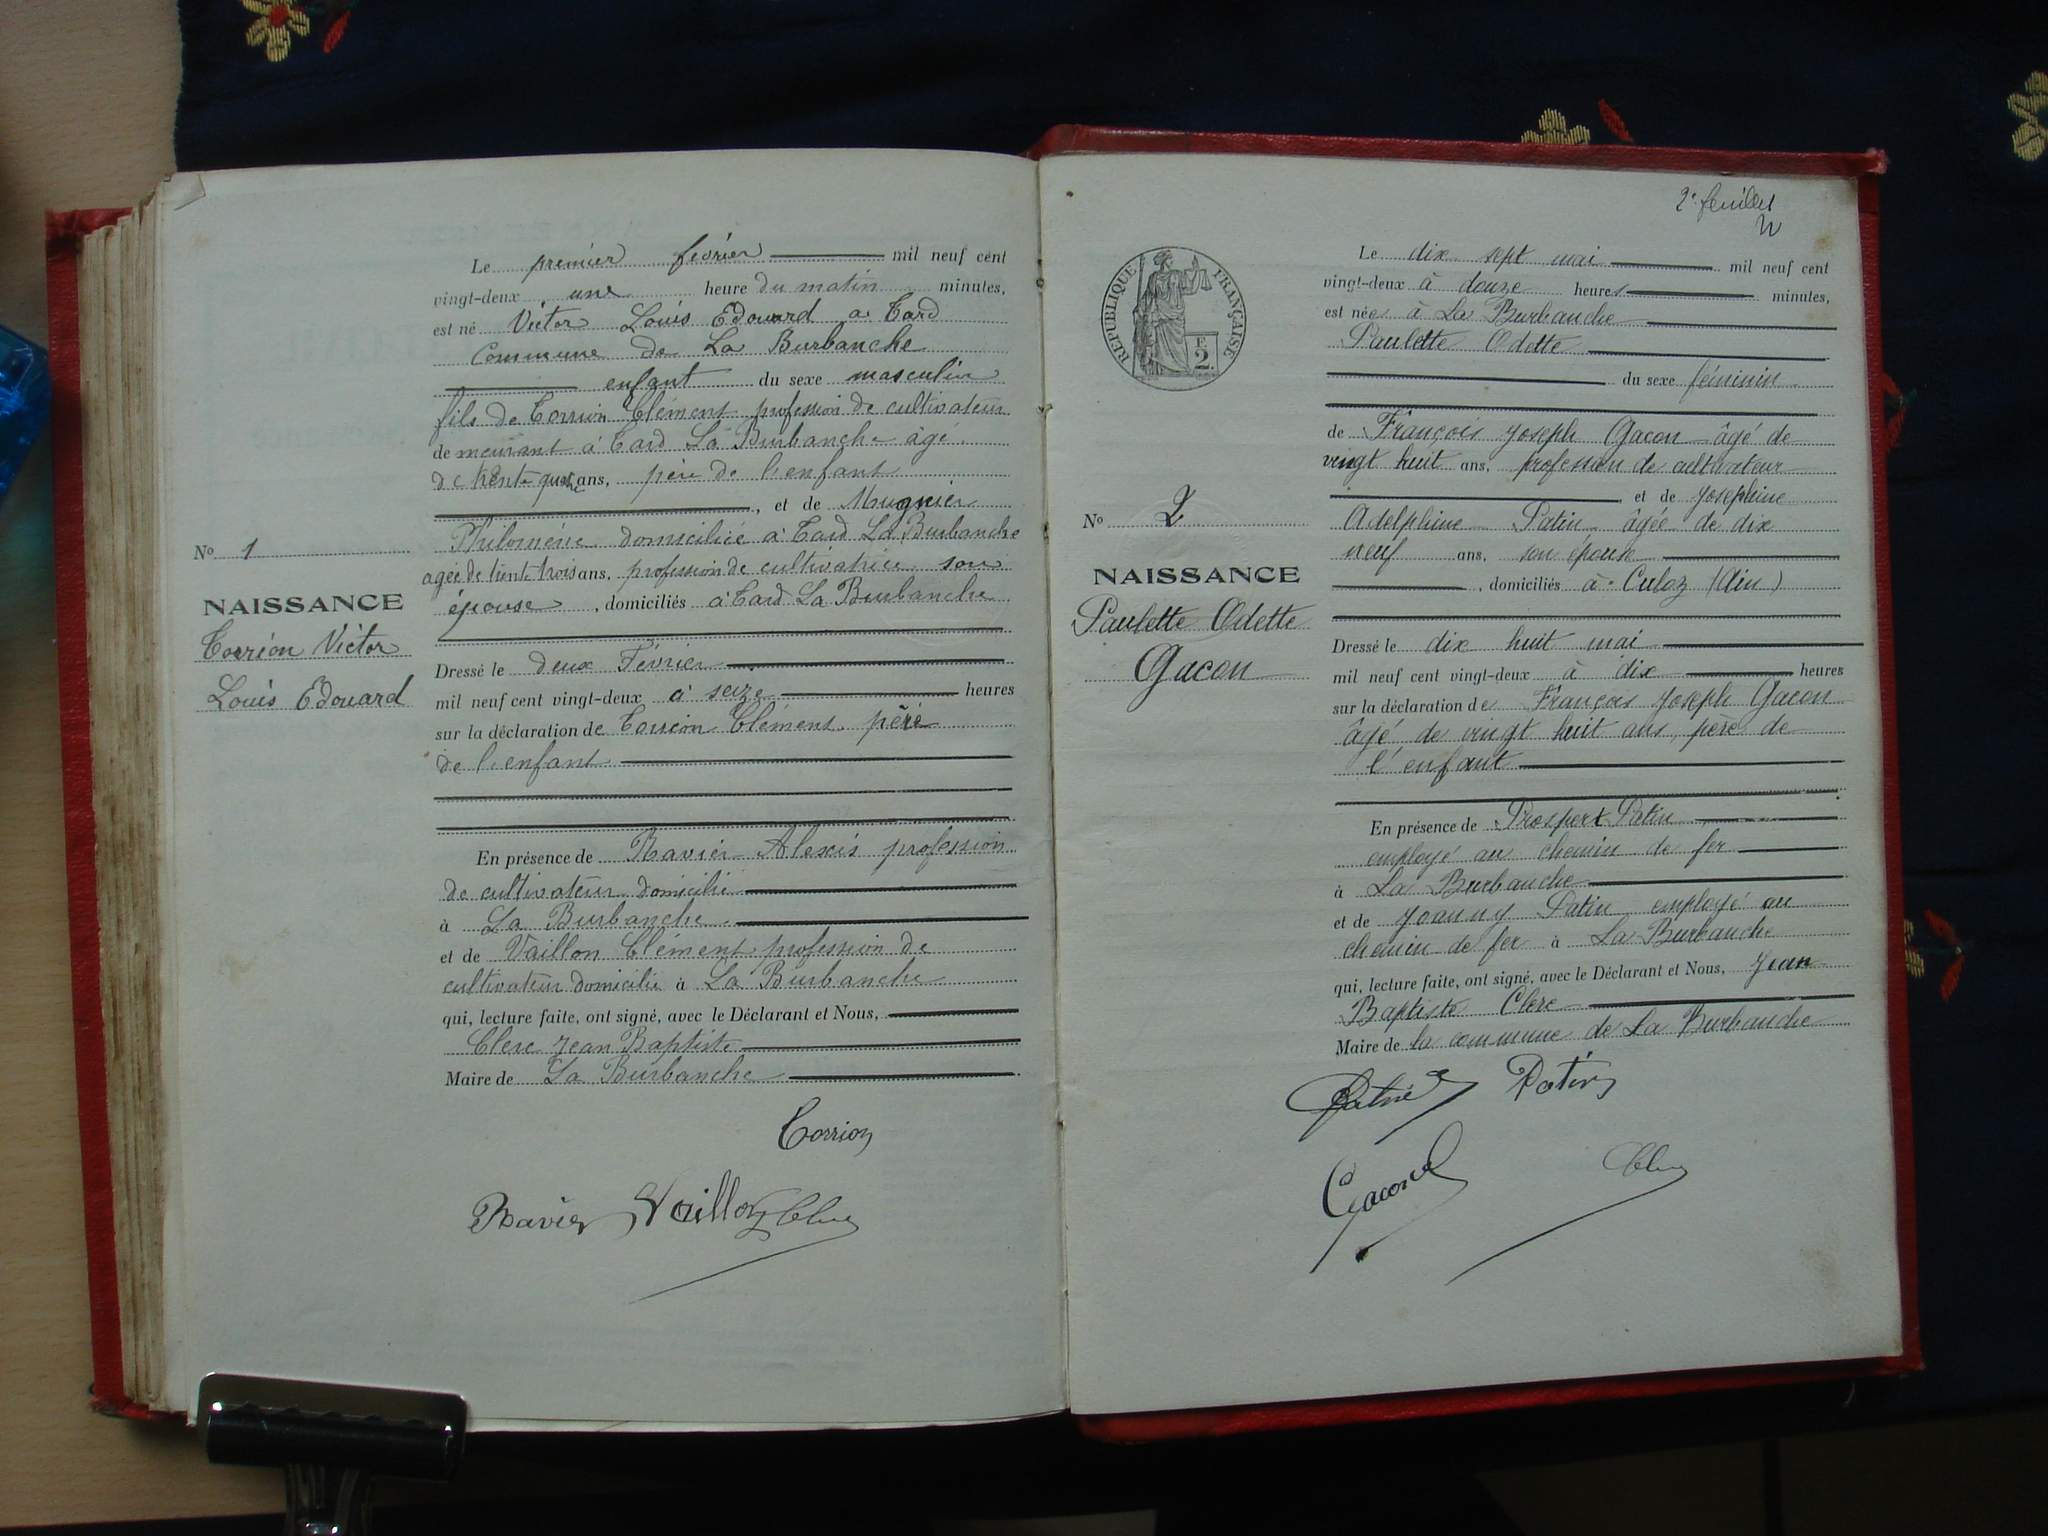 Le premier février mil neuf cent
vingt-deux une heure du matin minutes,
est né Victor Louis Edouard a Tard
Commune de La Burbanche
enfant du sexe masculin
fils de Torrion Clément profession de cultivateur
demeurant à Tard La Burbanche âgé
de trente quatre ans, père de l'enfant
, et de Mugnier
Philomène domiciliée à Tard La Burbanche
agée de trente trois ans, profession de cultivatrice son
épouse, domiciliés à Tard La Burbanche
No 1
NAISSANCE
Torrion Victor
Louis Edouard
Dressé le deux Février
mil neuf cent vingt-deux a seize heures
sur la déclaration de Torrion Clément père
de l'enfant
En présence de Ravier Alexis profession
de cultivateur domicilié
à La Burbanche
et de Vaillon Clément profession de
cultivateur domicilié à La Burbanche
qui, lecture faite, ont signé, avec le Déclarant et Nous,
Clerc Jean Baptiste
Maire de La Burbanche
Torrion
Ravier Vaillon Clerc
2e feuillet
RÉPUBLIQUE FRANÇAISE
F.
2.
Le dix sept mai mil neuf cent
vingt-deux à douze heures minutes,
est née à La Burbanche
Paulette Odette
du sexe féminin
de François Joseph Gacon âgé de
vingt huit ans, profession de cultivateur
, et de Joséphine
Adelphine Patin âgée de dix
neuf ans, son épouse
, domiciliés à Culoz (Ain)
No 2
NAISSANCE
Paulette Odette
Gacon
Dressé le dix huit mai
mil neuf cent vingt-deux à dix heures
sur la déclaration de François Joseph Gacon
âgé de vingt huit ans, père de
l'enfant
En présence de Prospert Patin
employé au chemin de fer
à La Burbanche
et de Joanny Patin employé au
chemin de fer à La Burbanche
qui, lecture faite, ont signé, avec le Déclarant et Nous, Jean
Baptiste Clerc
Maire de la commune de La Burbanche
Patin
Gacon Clerc